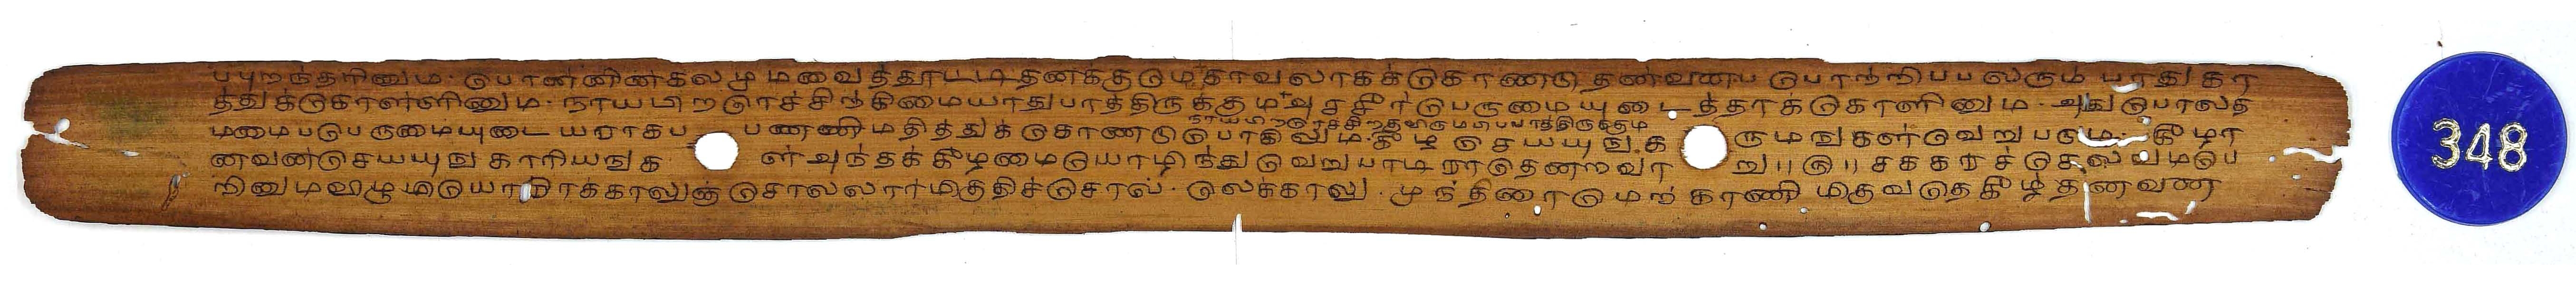 ப்புறந்தரினும். பொன்னின்கலமுமவைத்தூட்டிதனக்குமுதகாவலாகக்கொண்டு தன்வணப பொநந்நிபபலரும் பாதுகா
த்துக்கொள்ளினும். நாயபிறரெச்சிந்கிமையாதுபாத்திருக்கும் அரசீர்பெருமையுடைத்தாக்கொளினும். அதுபோலத
மமைபபெருமையுடையராகப பண்ணிமதித்துக்கொண்டுபோதிலும். கீழ் செயயுங்க ருமஙகள்வெறுபடும். கீழா
னவன்செயயுங காரியஙக ள்அந்தக்கீழமையொழிந்துவெறுபாடிராதென்றவா று || ரு || சககரச்செலவமபெ
றினுமவிழுமியொரொக்காலுஞ்சொலலார்மிகுதிச்சொல். எலக்காலு. முந்திரைமெற்காணி மிகுவதெகீழ்தனவண
348